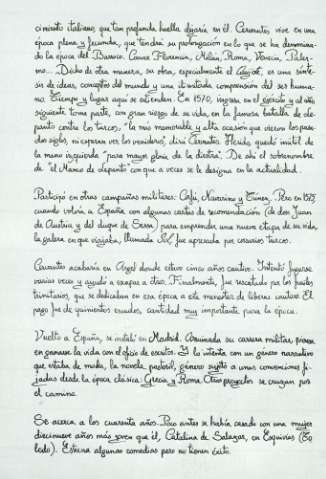 cimiento italiano, que tan profunda huella dejaría en él. Cervantes vive en una
época plena y fecunda, que tendrá su prolongación en lo que se ha denomina-
do la época del Barroco. Conoce Florencia, Milán, Roma, Venecia, Paler-
mo... Dicho de otra manera, su obra, especialmente el Quijote, es una sínte-
sis de ideas, conceptos del mundo y una ilimitada comprensión del ser huma-
no. Tiempo y lugar aquí se extienden. En 1570, ingresa en el ejército y al año
siguiente toma parte, con gran riesgo de su vida, en la famosa batalla de Le-
panto contra los turcos, "la más memorable y alta ocasión que vieron los pasa-
dos siglos, ni esperan ver los venideros", dirá Cervantes. Herido, quedó inútil de
la mano izquierda "para mayor gloria de la diestra". De ahí el sobrenombre
de "el Manco de Lepanto" con que a veces se le designa en la actualidad.
Participó en otras campañas militares: Corfú, Navarino y Túnez. Pero en 1575,
cuando volvía a España con algunas cartas de recomendación (de don Juan
de Austria y del duque de Sessa) para emprender una nueva etapa de su vida,
la galera en que viajaba, llamada Sol, fue apresada por corsarios turcos.
Cervantes acabaría en Argel donde estuvo cinco años cautivo. Intentó fugarse
varias veces y ayudó a escapar a otros. Finalmente, fue rescatado por los frailes
trinitarios, que se dedicaban en esa época a este menester de liberar cautivos. El
pago fue de quinientos escudos, cantidad muy importante para la época.
Vuelto a España, se instaló en Madrid. Arruinada su carrera militar, piensa
en ganarse la vida con el oficio de escritor. Y lo intenta con un género narrativo
que estaba de moda, la novela pastoril, género sujeto a unas convenciones fi-
jadas desde la época clásica: Grecia y Roma. Otros proyectos se cruzan por
el camino.
Se acerca a los cuarenta años. Poco antes se había casado con una mujer
diecinueve años más joven que él, Catalina de Salazar, en Esquivias (To-
ledo). Estrena algunas comedias pero no tienen éxito.